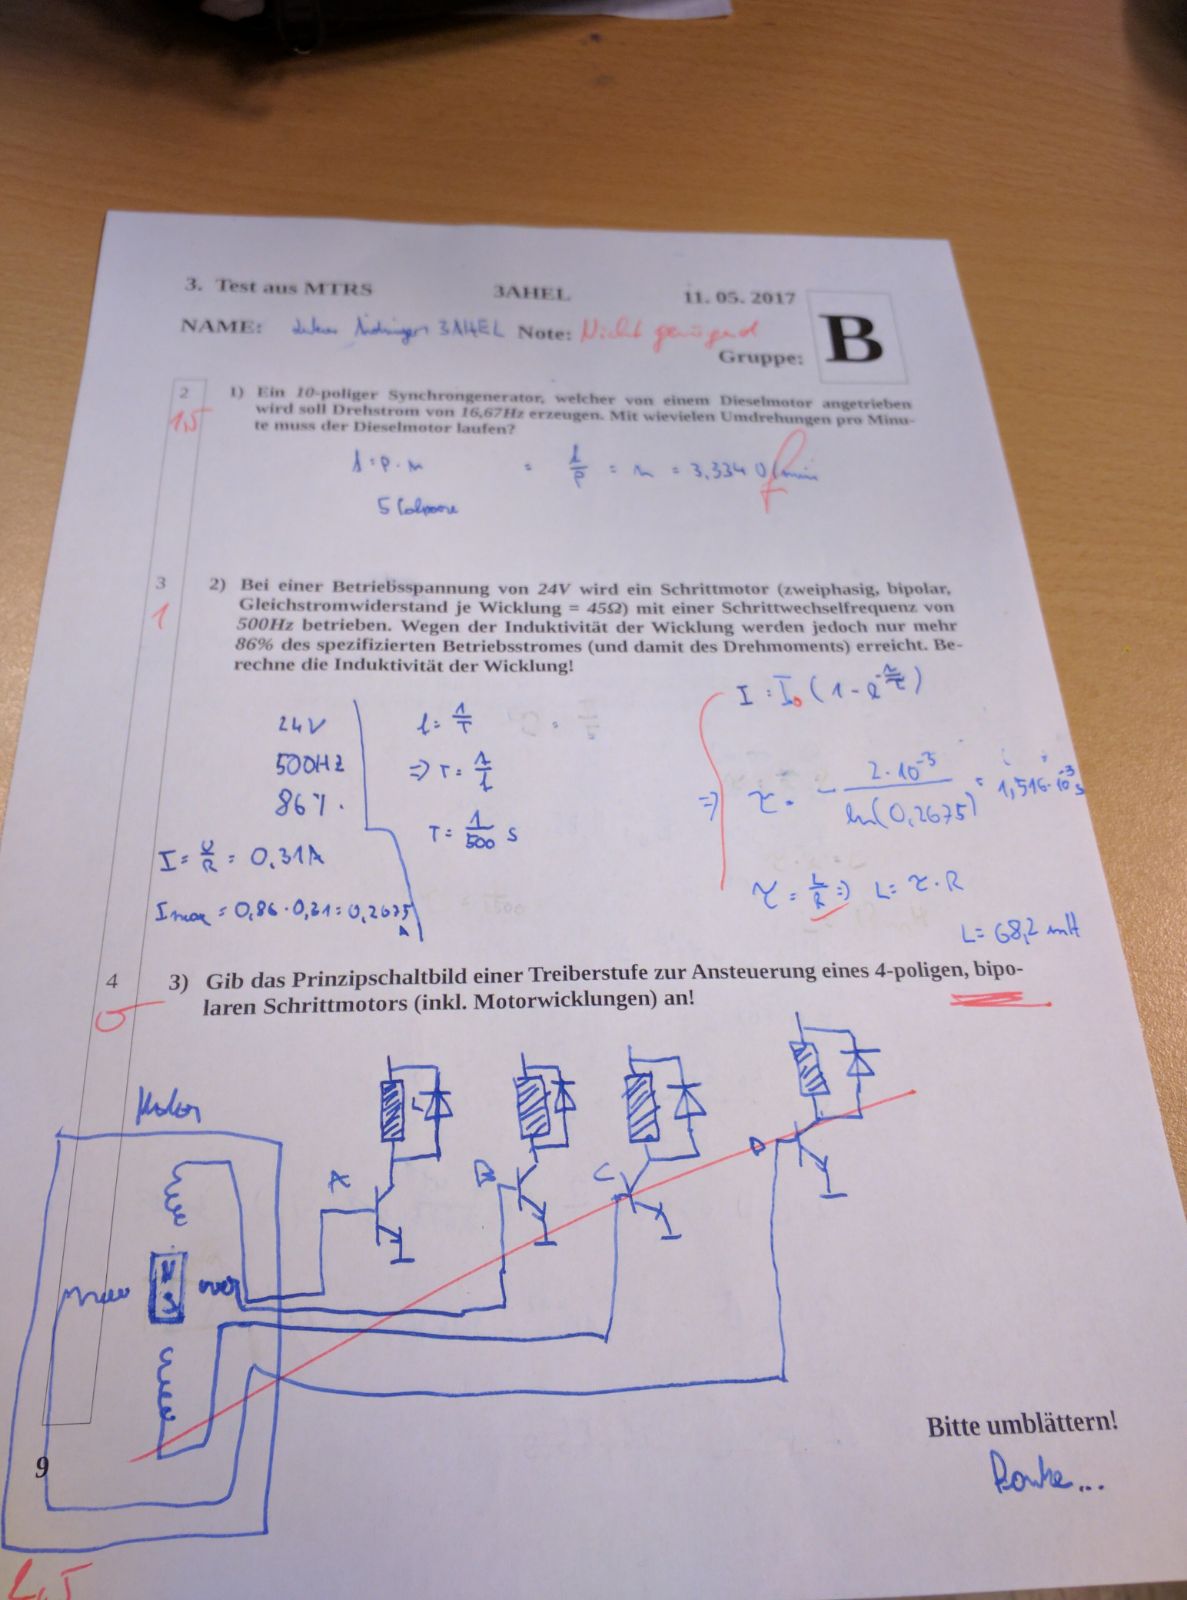 3. Test aus MTRS 3AHEL 11. 05. 2017
NAME: 3AHEL Note: Nicht genügend
Gruppe: B
2
1,5
1) Ein 10-poliger Synchrongenerator, welcher von einem Dieselmotor angetrieben
wird soll Drehstrom von 16,67Hz erzeugen. Mit wievielen Umdrehungen pro Minu-
te muss der Dieselmotor laufen?
f = p · n = f/p = n = 3,334 U/min f
5
3
1
2) Bei einer Betriebsspannung von 24V wird ein Schrittmotor (zweiphasig, bipolar,
Gleichstromwiderstand je Wicklung = 45Ω) mit einer Schrittwechselfrequenz von
500Hz betrieben. Wegen der Induktivität der Wicklung werden jedoch nur mehr
86% des spezifizierten Betriebsstromes (und damit des Drehmoments) erreicht. Be-
rechne die Induktivität der Wicklung!
24V
500Hz
86%.
I = U/R = 0,31A
Imax = 0,86 · 0,31 = 0,2675 A
f = 1/T
=> T = 1/f
T = 1/500 s
I = I0 (1 - e^
=> τ = - 2·10^-3 / ln(0,2675) = 1,516·10^-3 s
τ = L/R => L = τ · R
L = 68,2 mH
4
0
3) Gib das Prinzipschaltbild einer Treiberstufe zur Ansteuerung eines 4-poligen, bipo-
laren Schrittmotors (inkl. Motorwicklungen) an!
Motor
A
B
C
D
N
S
Bitte umblättern!
Danke...
9
2,5